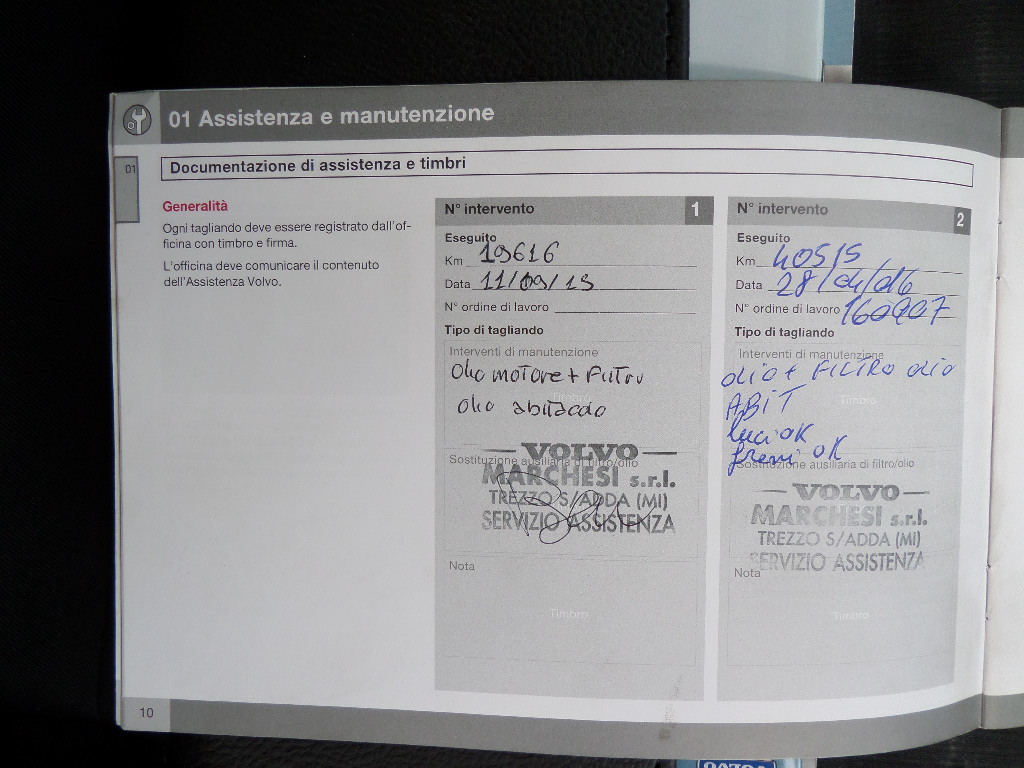 01 Assistenza e manutenzione
01
Documentazione di assistenza e timbri
Generalità
Ogni tagliando deve essere registrato dall'of-
ficina con timbro e firma.
L'officina deve comunicare il contenuto
dell'Assistenza Volvo.
N° intervento 1
Eseguito
Km 19616
Data 11/09/15
N° ordine di lavoro
Tipo di tagliando
Interventi di manutenzione
Olio motore + Filtro
Timbro
Olio abitacolo
Sostituzione ausiliaria di filtro/olio
VOLVO
MARCHESI s.r.l.
TREZZO S/ADDA (MI)
SERVIZIO ASSISTENZA
Nota
Timbro
N° intervento 2
Eseguito
Km 40515
Data 28/04/016
N° ordine di lavoro 160907
Tipo di tagliando
Interventi di manutenzione
OLIO + FILTRO OLIO
Timbro
ABIT
luci OK
freni OK
Sostituzione ausiliaria di filtro/olio
VOLVO
MARCHESI s.r.l.
TREZZO S/ADDA (MI)
SERVIZIO ASSISTENZA
Nota
Timbro
10